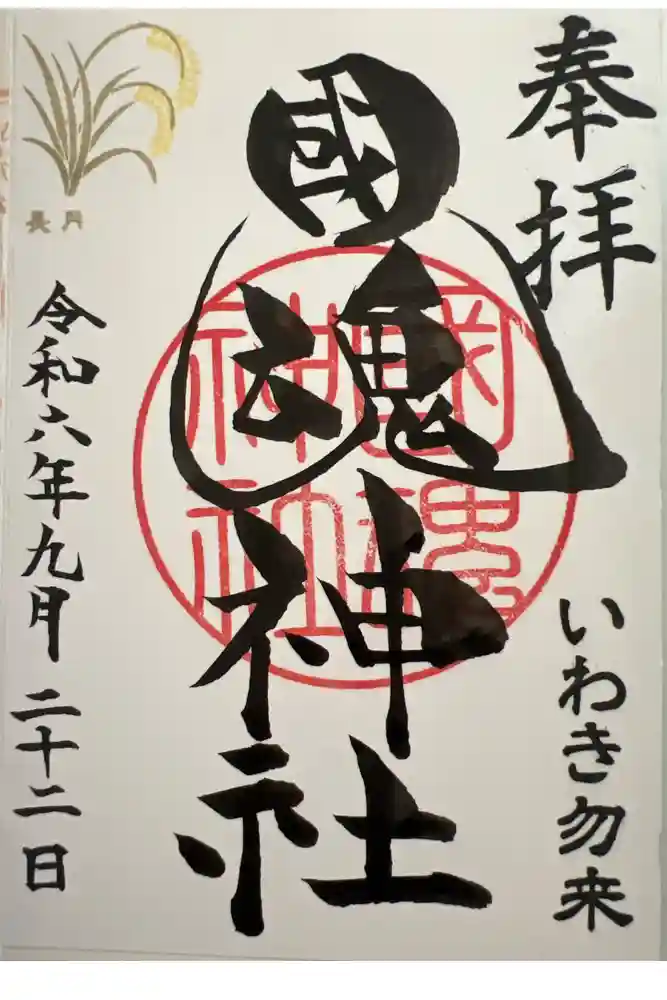 奉拝
いわき勿来
國魂神社
國魂神社
長月
令和六年九月二十二日